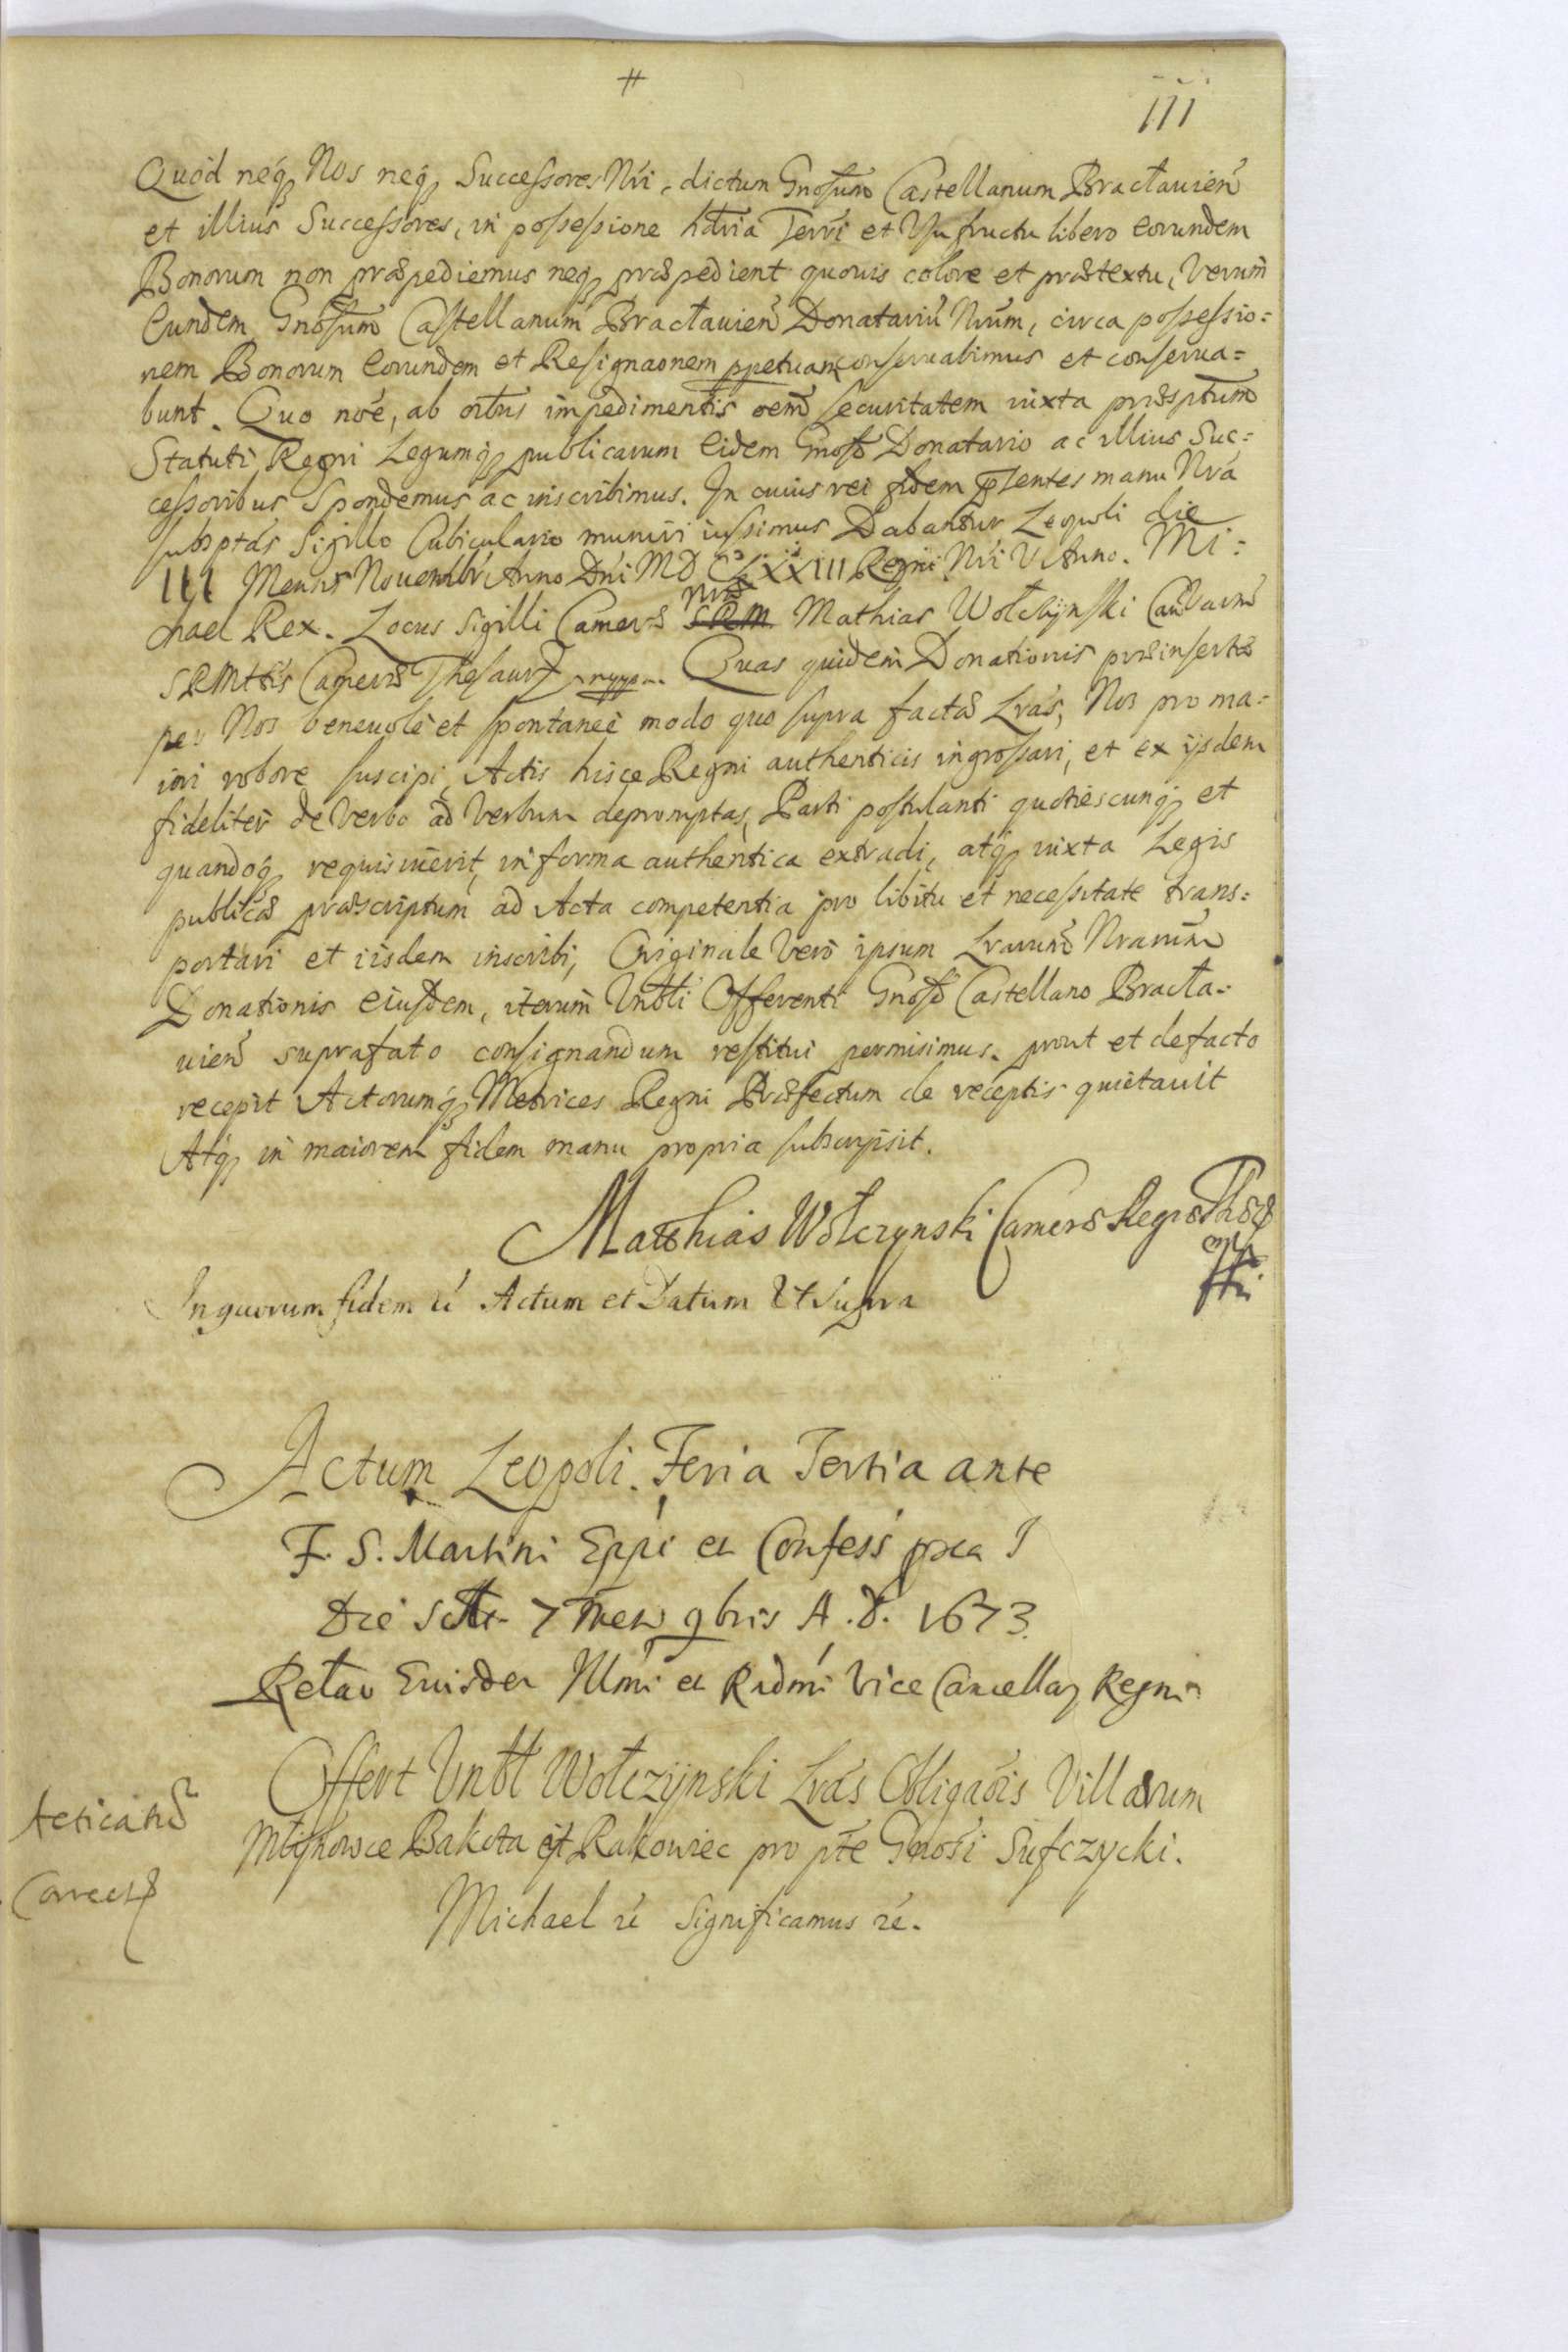 #
111
Quód neq́ꝫ Nos neq́ꝫ Successores Nŕi, dictum Gnosum Castellanum Bracłauień
et illius Successores, in possessione hdria Terŕi et Vsufructu libero eorundem
Bonorum non præpediemus neq́ꝫ præpedient quouis colore et prætextu, Verum
Eundem Gnosum Castellanum Bracłauień Donatariũ Nrũm, circa possessio=
nem Bonorum Eorundem et Resignaonem ppetuam conseruabimus et conserua=
bunt. Quo nóe, ab oĩbus impedimentis oem̃ securitatem iuxta præsptum
Statuti Regni Legumq́ꝫ publicarum Eidem Gnoso Donatario ac illius Suc=
cessoribus Spondemus ac inscribimus. In cuius rei fidem pŕentes manu Nŕa
subsptás Sigillo Cubiculario muniri iussimus Dabantur Leopoli die
III Mensis Nouembŕ Anno Dńi MDCLXXIII Regni Nŕi V Anno. Mi=
chael Rex. Locus Sigilli Cameræ Nræ SRM Mathias Wołczÿnski
SRMttis Cameræ Thesaurꝫ mppa. Quas quidem Donationis præinsertæ
per Nos beneuolè et spontaneè modo quo supra factæ Lrás, Nos pro ma=
iori robore suscipi, Actis hisce Regni authenticis ingrossari, et ex ijsdem
fideliter de Verbo ad Verbum depromptas, Parti postulanti quotiescunq́ꝫ et
quandoq́ꝫ requisiuerit, in forma authentica extradi, atq́ꝫ iuxta Legis
publicæ præscriptum ad Acta competentia pro libitu et necessitate trans=
portari et iisdem inscribi, Originale Verò ipsum Lrarum Nrarum
Donationis eiusdem, iterum Vnbłi Offerenti Gnoso Castellano Bracła=
uień suprafato consignandum restitui permisimus. prout et defacto
recepit Actorumq́ꝫ Metrices Regni Præfectum de receptis quietauit
Atq́ꝫ in maiorem fidem manu propria subscripsit.
Matthias Wołczynski Cameræ Regiæ
In quorum fidem ré Actum et Datum Ut Supra
Actum Leopoli. Feria Tertia ante
F. S. Martini Eppi et Confess
Die 7 mens 9bris A. D. 1673
Relao Eiusdem Illmi et Rndmi Vice Cancellaꝫ Regni
Offert Vnbłł Wołczÿnski Lrás Obligaóis Villarum
Mlÿnowce Bakota et Rakowiec pro pte Gnosi Sufczycki.
Michael ré significamus ré.
Acticatæ
Correctꝫ